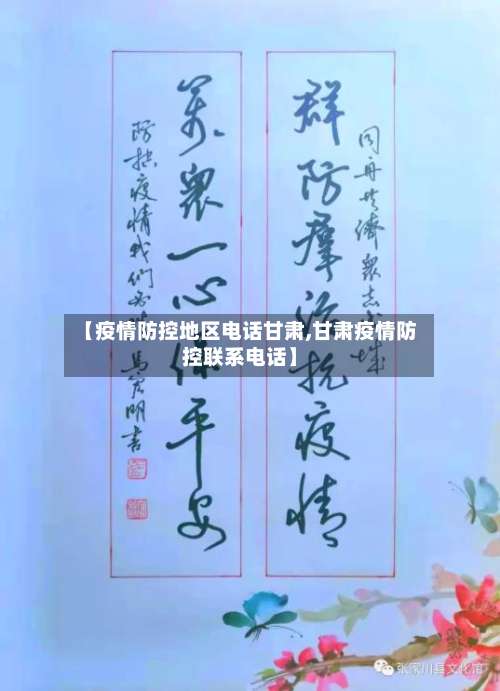 同舟共济众志成城
群防群治抗疫情
万众一心保平安
防控疫情我们必胜
明书
【疫情防控地区电话甘肃,甘肃疫情防
控联系电话】
张家川县文化馆